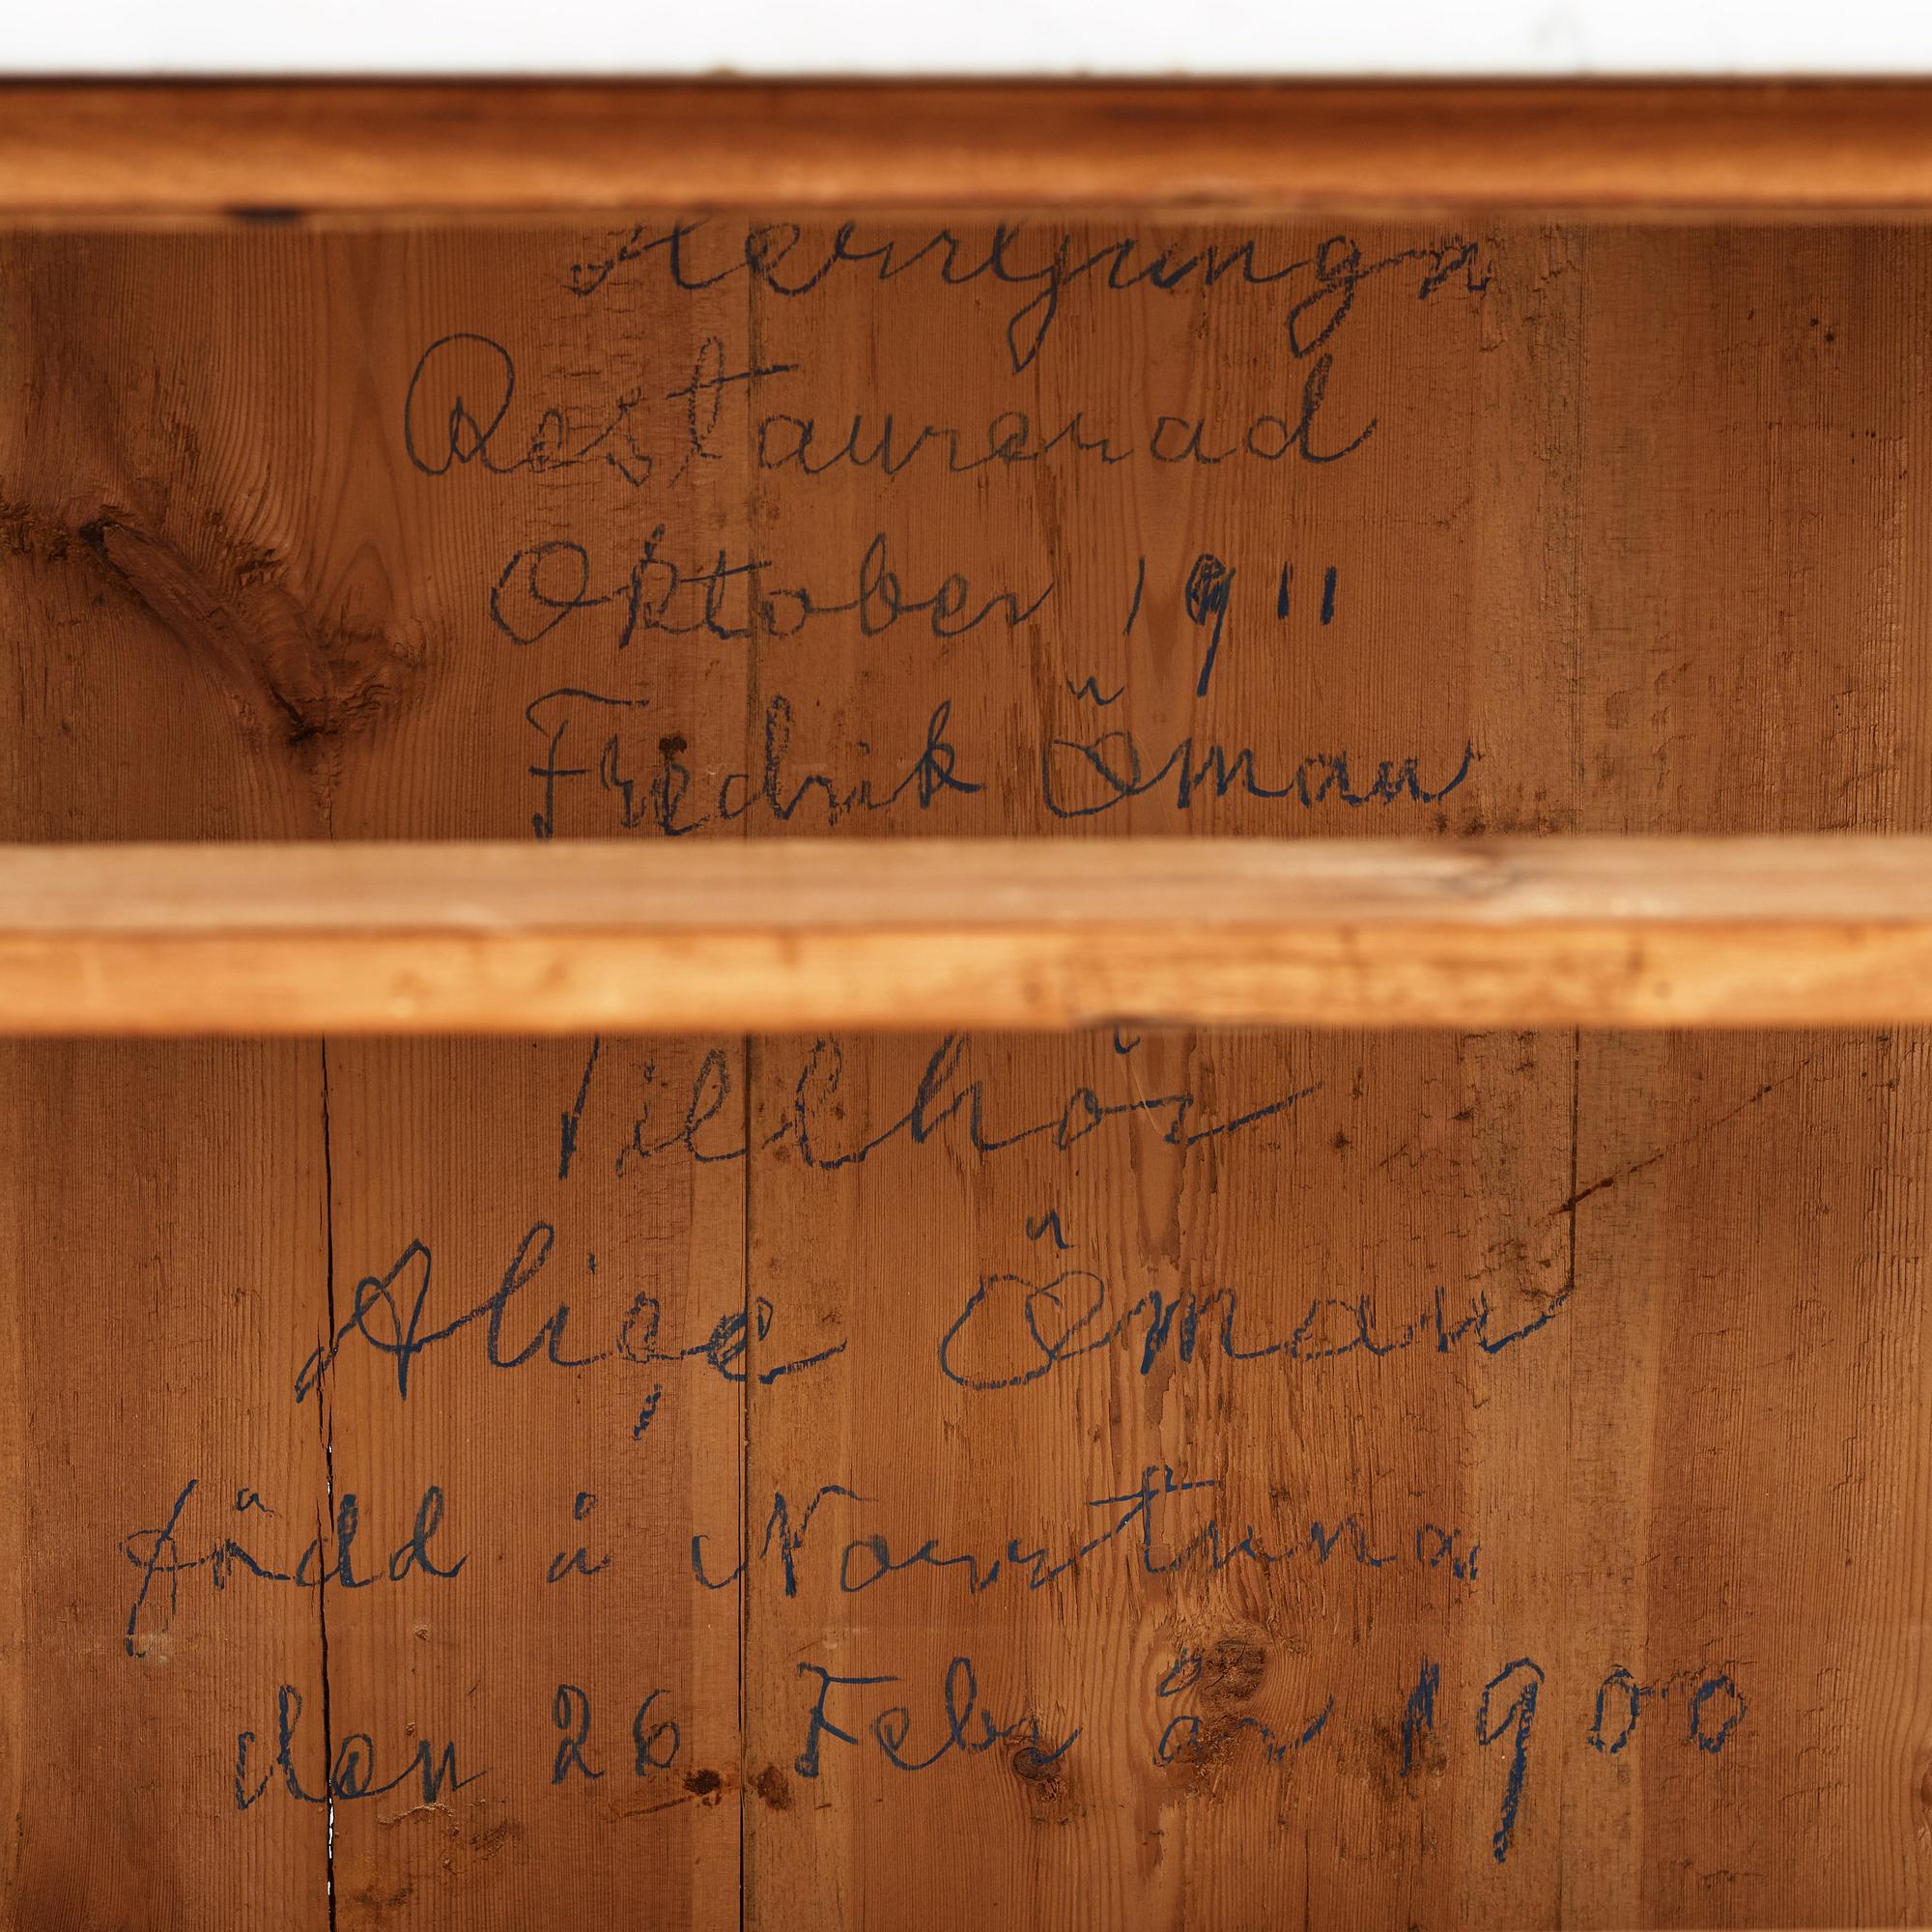 Herrljunga
Restaurerad
Oktober 1911
Fredrik Öman
Tillhör
Alice Öman
född i Norrtuna
den 26 Febr år 1900